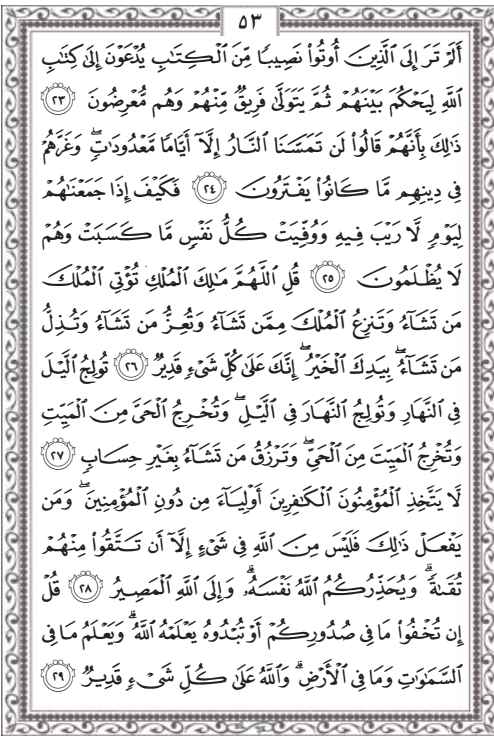 ٥٣
أَلَمْ تَرَ إِلَى ٱلَّذِينَ أُوتُوا۟ نَصِيبًا مِّنَ ٱلْكِتَٰبِ يُدْعَوْنَ إِلَىٰ كِتَٰبِ
ٱللَّهِ لِيَحْكُمَ بَيْنَهُمْ ثُمَّ يَتَوَلَّىٰ فَرِيقٌ مِّنْهُمْ وَهُم مُّعْرِضُونَ ٢٣
ذَٰلِكَ بِأَنَّهُمْ قَالُوا۟ لَن تَمَسَّنَا ٱلنَّارُ إِلَّآ أَيَّامًا مَّعْدُودَٰتٍ ۖ وَغَرَّهُمْ
فِى دِينِهِم مَّا كَانُوا۟ يَفْتَرُونَ ٢٤ فَكَيْفَ إِذَا جَمَعْنَٰهُمْ
لِيَوْمٍ لَّا رَيْبَ فِيهِ وَوُفِّيَتْ كُلُّ نَفْسٍ مَّا كَسَبَتْ وَهُمْ
لَا يُظْلَمُونَ ٢٥ قُلِ ٱللَّهُمَّ مَٰلِكَ ٱلْمُلْكِ تُؤْتِى ٱلْمُلْكَ
مَن تَشَآءُ وَتَنزِعُ ٱلْمُلْكَ مِمَّن تَشَآءُ وَتُعِزُّ مَن تَشَآءُ وَتُذِلُّ
مَن تَشَآءُ ۖ بِيَدِكَ ٱلْخَيْرُ ۖ إِنَّكَ عَلَىٰ كُلِّ شَىْءٍ قَدِيرٌ ٢٦ تُولِجُ ٱلَّيْلَ
فِى ٱلنَّهَارِ وَتُولِجُ ٱلنَّهَارَ فِى ٱلَّيْلِ ۖ وَتُخْرِجُ ٱلْحَىَّ مِنَ ٱلْمَيِّتِ
وَتُخْرِجُ ٱلْمَيِّتَ مِنَ ٱلْحَىِّ ۖ وَتَرْزُقُ مَن تَشَآءُ بِغَيْرِ حِسَابٍ ٢٧
لَّا يَتَّخِذِ ٱلْمُؤْمِنُونَ ٱلْكَٰفِرِينَ أَوْلِيَآءَ مِن دُونِ ٱلْمُؤْمِنِينَ ۖ وَمَن
يَفْعَلْ ذَٰلِكَ فَلَيْسَ مِنَ ٱللَّهِ فِى شَىْءٍ إِلَّآ أَن تَتَّقُوا۟ مِنْهُمْ
تُقَىٰةً ۗ وَيُحَذِّرُكُمُ ٱللَّهُ نَفْسَهُۥ ۗ وَإِلَى ٱللَّهِ ٱلْمَصِيرُ ٢٨ قُلْ
إِن تُخْفُوا۟ مَا فِى صُدُورِكُمْ أَوْ تُبْدُوهُ يَعْلَمْهُ ٱللَّهُ ۗ وَيَعْلَمُ مَا فِى
ٱلسَّمَٰوَٰتِ وَمَا فِى ٱلْأَرْضِ ۗ وَٱللَّهُ عَلَىٰ كُلِّ شَىْءٍ قَدِيرٌ ٢٩